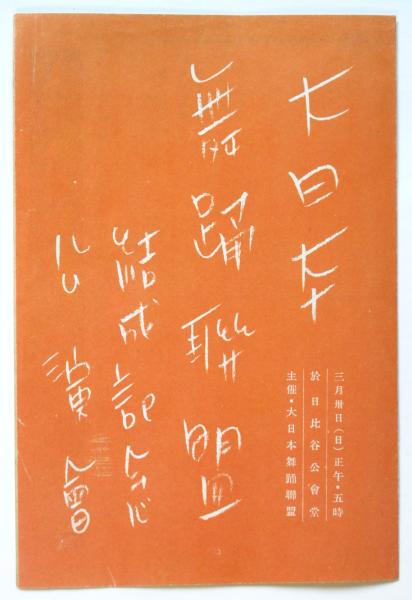 大日本
舞踊聯盟
結成記念
公演會
三月卅日(日)正午・五時
於日比谷公會堂
主催・大日本舞踊聯盟